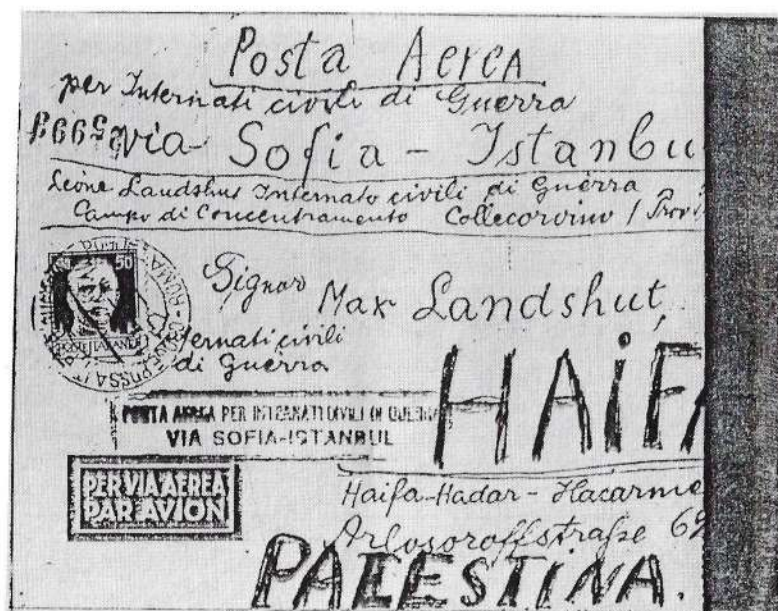 Posta Aerea
per Internati civili di Guerra
via Sofia - Istanbu
Leone Landshut Internato civili di Guerra
Campo di Concentramento Collecorvino / Prov
50
Signor Max Landshut,
ternati civili
di Guerra
HAiFA
POSTA AEREA PER INTERNATI CIVILI DI GUERRA
VIA SOFIA-ISTANBUL
PER VIA AEREA
PAR AVION
Haifa-Hadar-Hacarme
Arlosoroffstraße 69
PALESTINA.